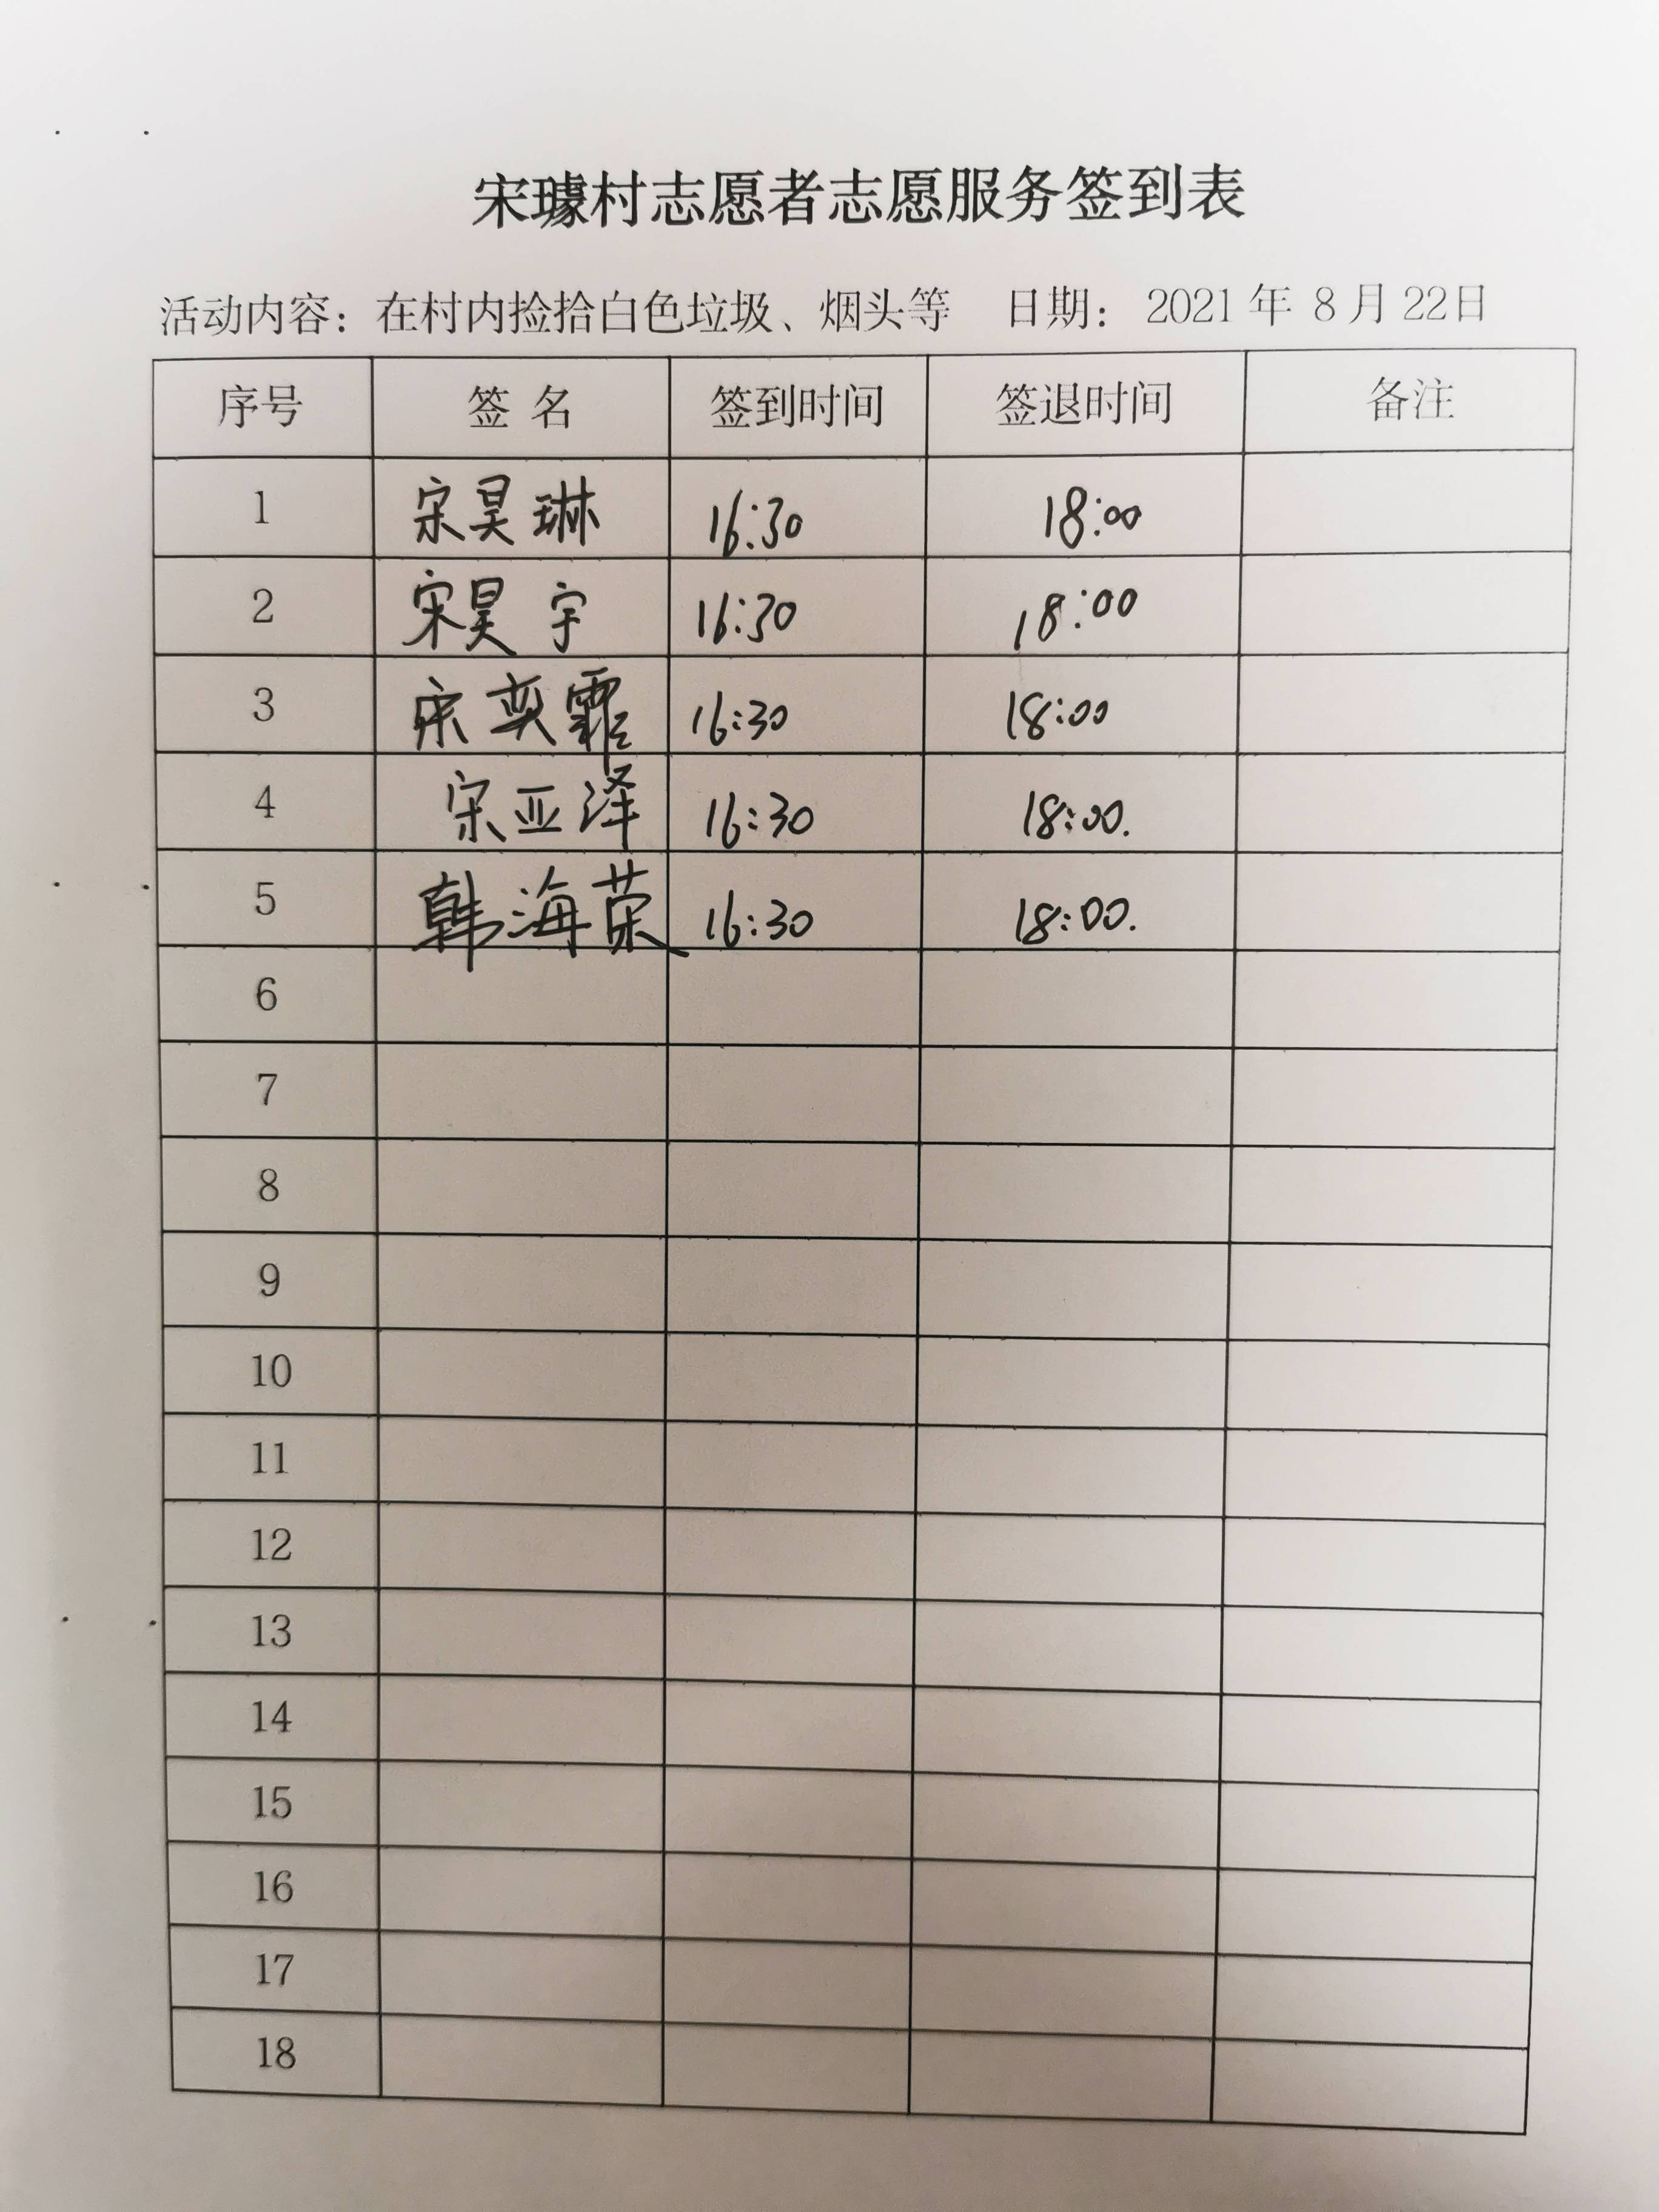 宋璩村志愿者志愿服务签到表
活动内容：在村内捡拾白色垃圾、烟头等 日期： 2021年 8月 22日
序号 签 名 签到时间 签退时间 备注
1 宋昊琳 16:30 18:00
2 宋昊宇 16:30 18:00
3 宋奕霏 16:30 18:00
4 宋亚泽 16:30 18:00.
5 韩海荣 16:30 18:00.
6
7
8
9
10
11
12
13
14
15
16
17
18